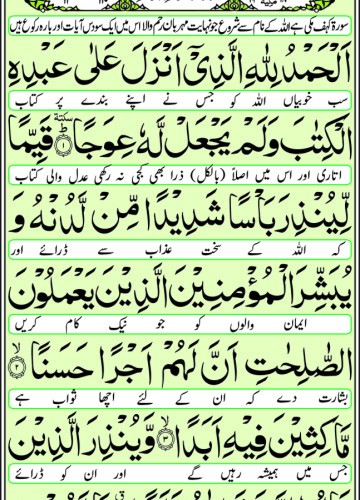 سورۃ کہف مکی ہے اللہ کے نام سے شروع جو نہایت مہربان رحم والا اس میں ایک سو دس آیات اور بارہ رکوع ہیں
اَلْحَمْدُ لِلّٰهِ الَّذِیْۤ اَنْزَلَ عَلٰى عَبْدِهِ
سب خوبیاں اللہ کو جس نے اپنے بندے پر کتاب
الْكِتٰبَ وَ لَمْ یَجْعَلْ لَّهٗ عِوَجًاٚ ۱ قَیِّمًا
اتاری اور اس میں اصلاً (بالکل) ذرا بھی کجی نہ رکھی عدل والی کتاب
لِّیُنْذِرَ بَاْسًا شَدِیْدًا مِّنْ لَّدُنْهُ وَ
کہ اللہ کے سخت عذاب سے ڈرائے اور
یُبَشِّرَ الْمُؤْمِنِیْنَ الَّذِیْنَ یَعْمَلُوْنَ
ایمان والوں کو جو نیک کام کریں
الصّٰلِحٰتِ اَنَّ لَهُمْ اَجْرًا حَسَنًا ۲
بشارت دے کہ ان کے لئے اچھا ثواب ہے
مَّاكِثِیْنَ فِیْهِ اَبَدًا ۳ وَّ یُنْذِرَ الَّذِیْنَ
جس میں ہمیشہ رہیں گے اور ان کو ڈرائے